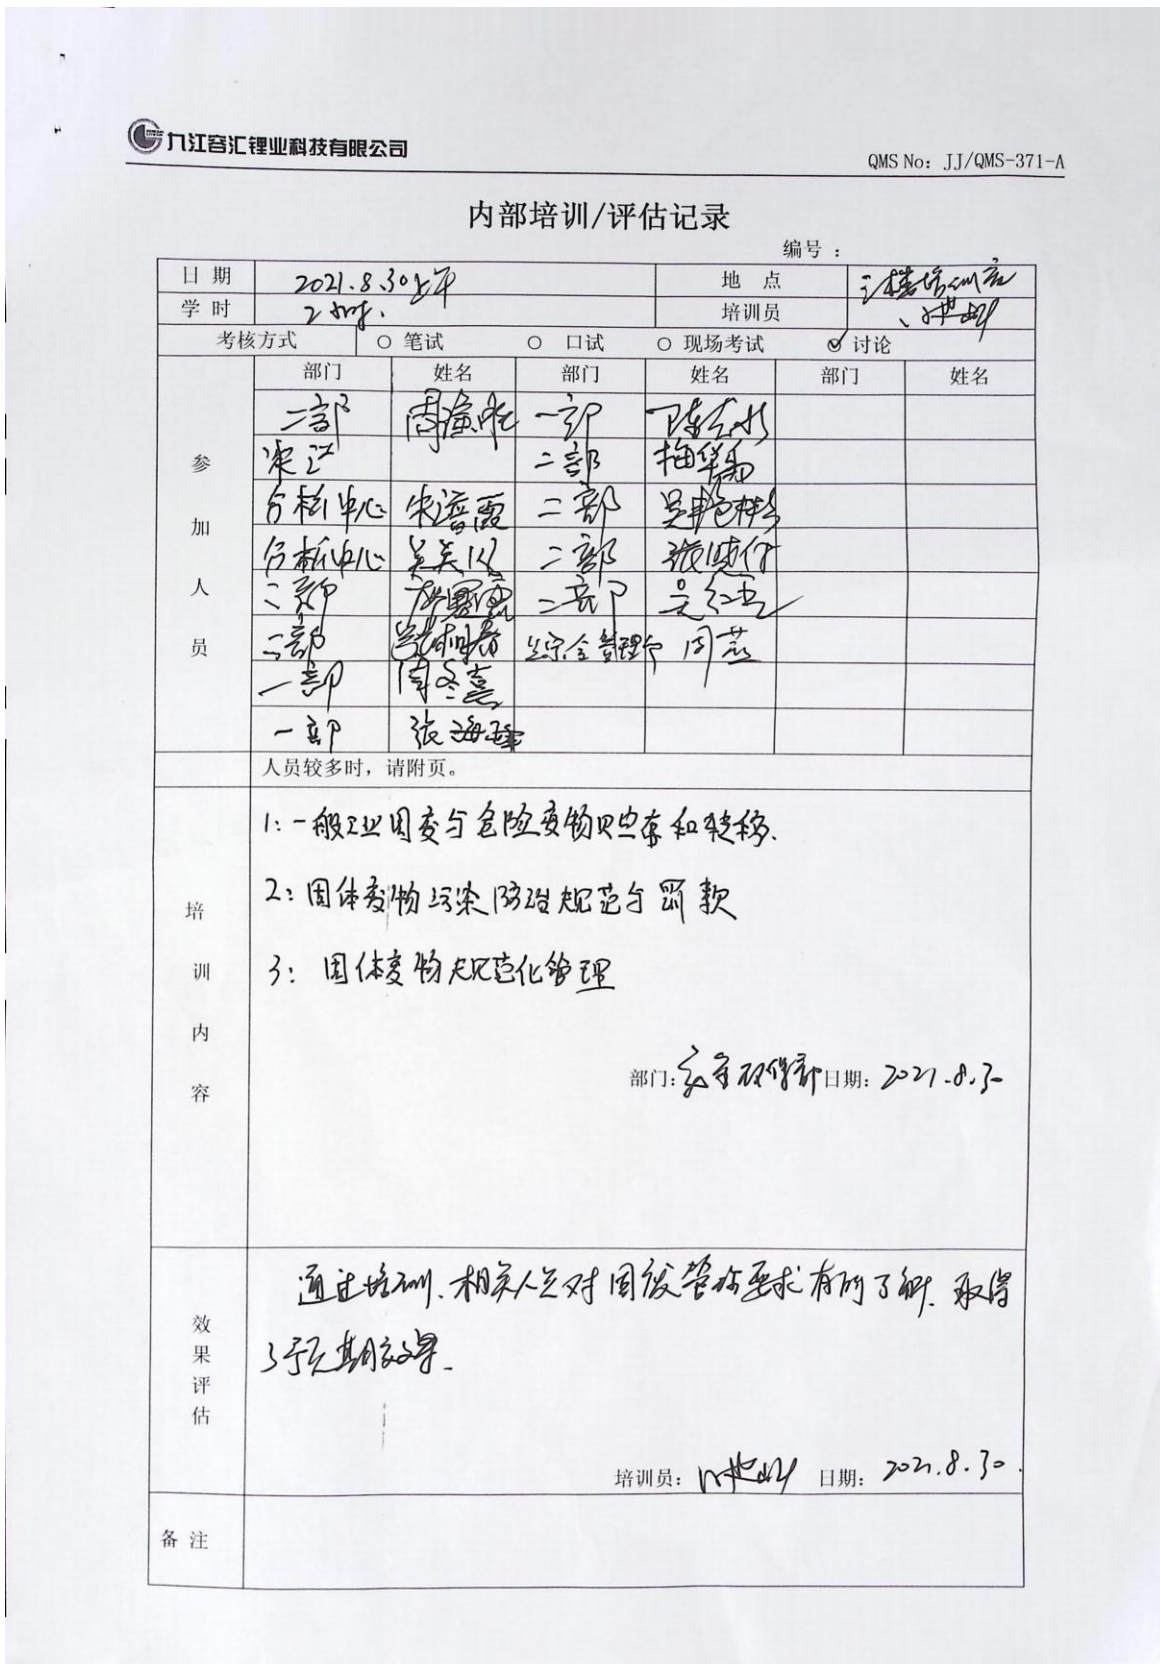 九江容汇锂业科技有限公司
QMS No: JJ/QMS-371-A
内部培训/评估记录
编号：
日 期 2021.8.30上午 地 点 三楼培训室
学 时 2小时. 培训员
考核方式 ○ 笔试 ○ 口试 ○ 现场考试 ✓ 讨论
参加人员 部门 姓名 部门 姓名 部门 姓名
二部 一部
二部 梅华
分析中心 宋 霞 二部 吴
分析中心 吴美 二部 张
二部 二部 吴红
二部 安全管理部 周燕
一部 周冬喜
一部 张海
人员较多时，请附页。
培训内容
1:一般工业固废与危险废物贮存和转移.
2:固体废物污染防治规范与罚款
3:固体废物规范化管理
部门:安全环保部 日期: 2021.8.30
效果评估
通过培训、相关人员对固废管标要求有所了解. 取得
了预期效果.
培训员: 日期: 2021.8.30.
备 注